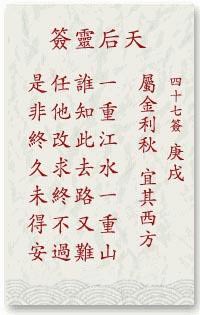 天后靈簽
四十七簽 庚戌
屬金利秋 宜其西方
一重江水一重山
誰知此去路又難
任他改求終不過
是非終久未得安